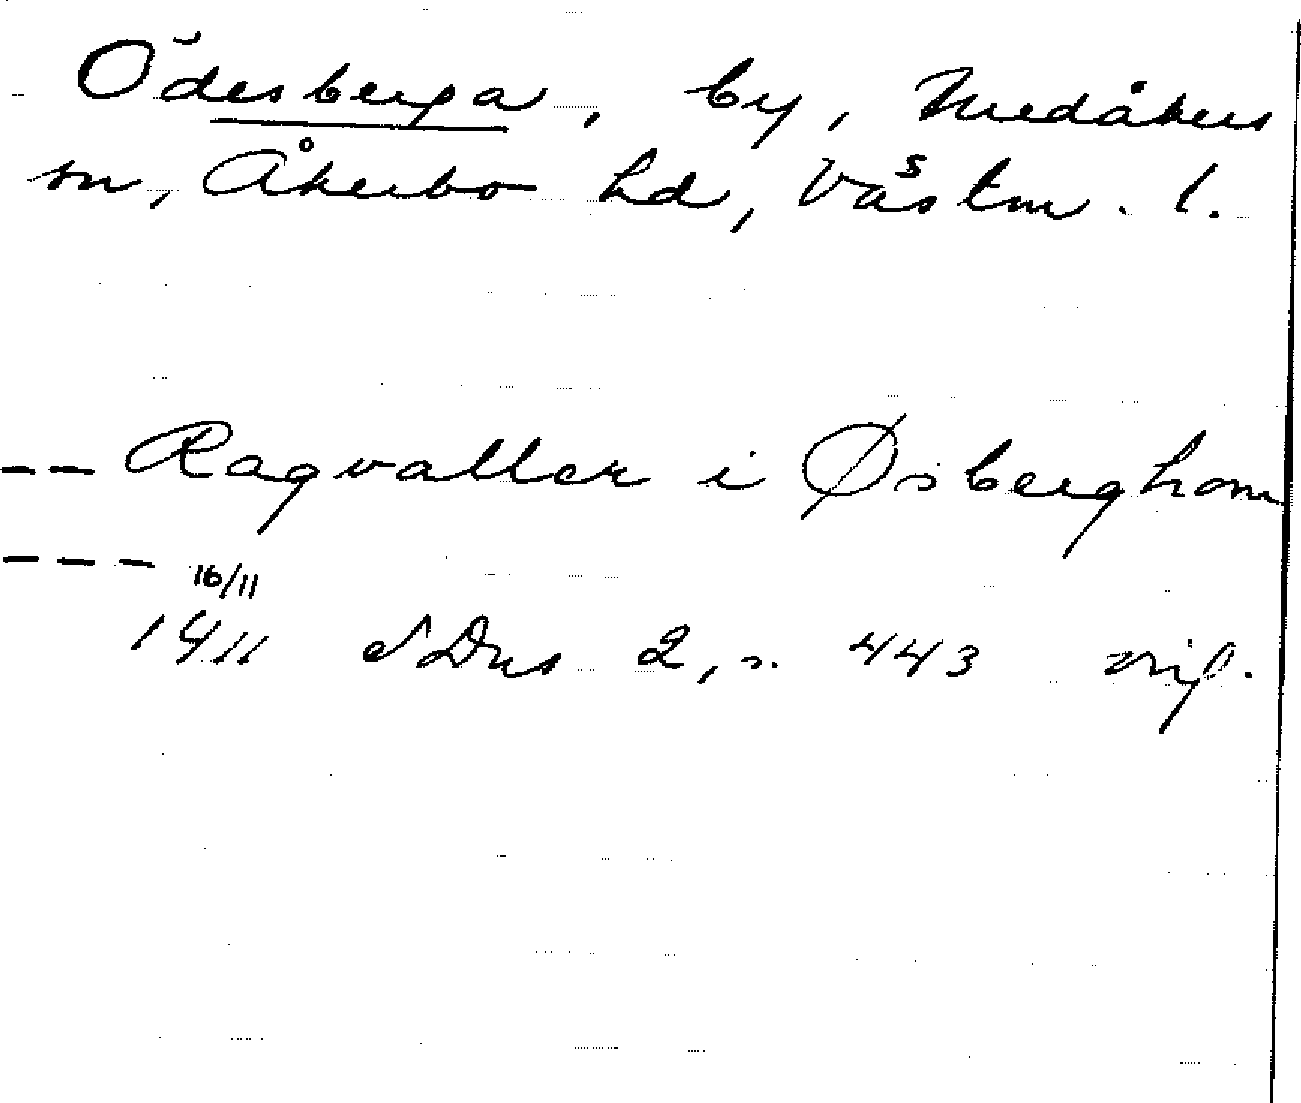 Ödesberga, by, Medåkers
sn, Åkerbo hd, Västm. l.
-- Ragvaller i Øsberghom
--- 16/11
1411 SDns 2, s. 443